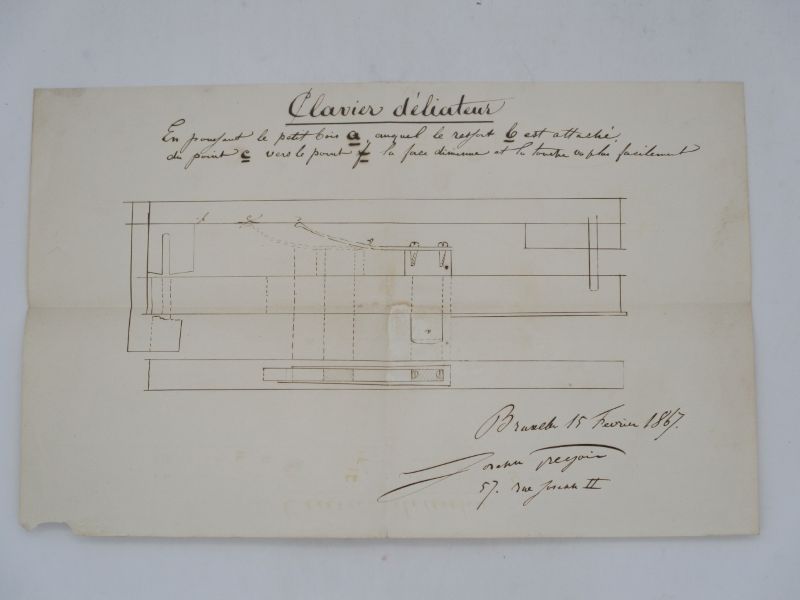 Clavier déliateur
En poussant le petit bois a, auquel le ressort b est attaché,
du point c vers le point f la face diminue et la touche va plus facilement
Bruxelles 15 Fevrier 1867.
Joseph Gregoir
57. rue Joseph II